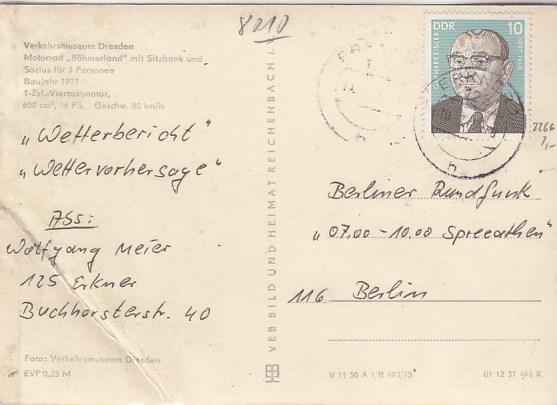 8010
Verkehrsmuseum Dresden
Motorrad „Böhmerland" mit Sitzbank und
Sozius für 3 Personen
Baujahr 1927
1-Zyl.-Viertaktmotor,
650 cm³, 16 PS. Geschw. 80 km/h
„Wetterbericht"
„Wettervorhersage"
Abs:
Wolfgang Meier
125 Erkner
Buchhorsterstr. 40
Foto: Verkehrsmuseum Dresden
EVP 0,25 M
VEB BILD UND HEIMAT REICHENBACH I.
DDR 10
2266
1,-
Berliner Rundfunk
„07.00-10.00 Spreeathen"
116 Berlin
V 11 50 A 1/B 493/75
01 12 31 493 K